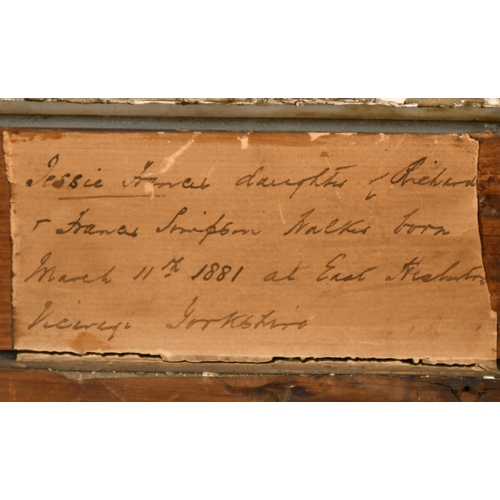 Jessie Frances daughter of Richard
& Frances Simpson Walker born
March 11th 1881 at East
Vicarage Yorkshire